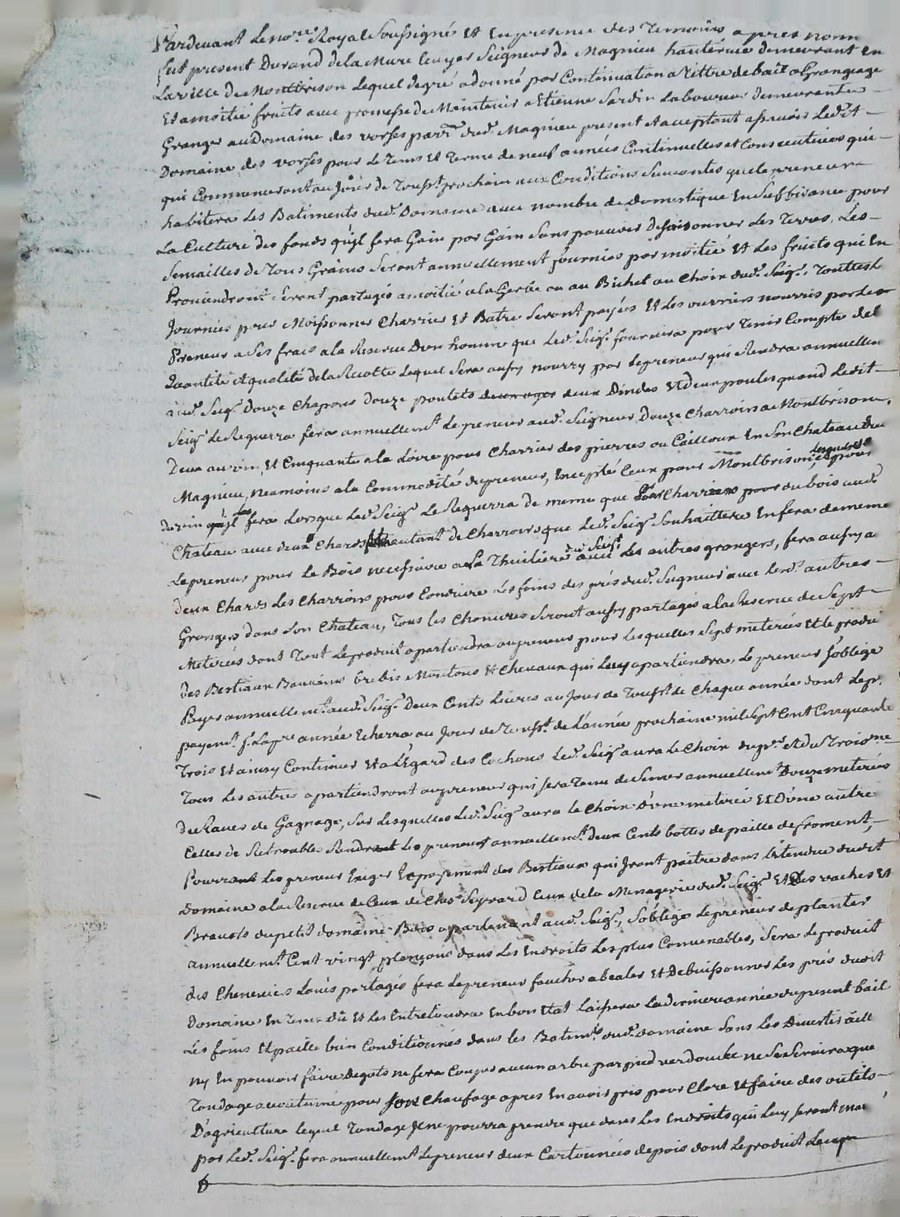 Pardevant le nore. Royal Soussigné et En presence des Temoins apres nom
fut present Durand de la Mure Ecuyer Seigneur de Magnieu hauterive demeurant En
La ville de Montbrison Lequel de gré a donné par Continuation a tittre de bail a Grangeage
Et a moitié fruits avec promesse de Maintenir a Etienne Jardin Laboureur demeurant
Granger au Domaine des vorses parr. dud. Magnieu present et acceptant scavoir Led.it
Domaine des vorses pour Le Tems et Terme de neuf années Continuelles et Consecutives qui
qui Commenceront au Jour de Toussts. prochain aux Conditions Suivantes que le preneur
habitera Les Batiments dud. Domaine avec nombre de Domestique En Suffisance pour
La Culture des fonds qu'jl fera Gain par Gain Sans pouvoir desaisonner Les Terres, Les
Semailles de Tous Grains Seront annuellement fournies par moitié Et Les fruits qui En
Proviendront Seront partagés a moitié a la Gerbe ou au Bichet au Choix dud. Seigr. Touttes L
Journées pour Moissonner Charrier Et Batre Seront payées Et Les ouvriers nourris par Le
Preneur a Ses frais a la Reserve D'un homme que Led. Seigr. fournira pour Tenir Compte de L
Quantité et qualité de la Recolte Lequel Sera aussy nourry par Le preneur qui Rendra annuellem
aud. Seigr. Douze Chapons Douze poulets deux Dindes Et deux poules quand Ledit
Seigr. Le Requerra fera annuellemt. Le preneur aud. Seigneur Douze Charrois a Montbrison,
Deux au vin, Et Cinquante a la Loire pour Charrier des pierres ou Cailloux En Son Chateau du
Magnieu, neamoins a la Commodité du preneur, Excepté Ceux pour Montbrison, et pour
du vin qu'jl fera Lorsque Led. Seigr. Le Requerra de meme que pour Charrier du bois aud.
Chateau avec deux Chars autant de Charrois que Led. Seigr. Souhaittera En fera de meme
Le preneur pour Le Bois necessaire a La Thuiliere dud. Seigr. avec Les autres grangers, fera aussy a
deux Chars Les Charrois pour Conduire Les foins des prés dud. Seigneur avec Lesd. autres
Grangers dans Son Chateau, Tous Les Chenvres Seront aussy partagés a la Reserve de Sept
Meterées dont Tout Le produit apartiendra au preneur pour Lesquelles Sept meterées Et le produi
des Bestiaux Brebis Moutons Et Chevaux qui Luy apartiendra, Le preneur S'oblige
Payer annuellemt. aud. Seigr. Deux Cents Livres au Jour de Toussts. de Chaque année dont Le pr.
payemt. p. La pre. année Echerra au Jour de Toussts. de L'année prochaine mil Sept Cent Cinquante
Trois Et ainsy Continuer Et a L'Egard des Cochons Led. Seigr. aura Le Choix du pr. Et du Troisme
Tous Les autres apartiendront au preneur qui Sera Tenu de Semer annuellemt. Douze meterées
de Raves de Gagnage, Sur Lesquelles Led. Seigr. aura Le Choix D'une meterée Et D'une autre
Celles de Retrouble Rendra Le preneur annuellemt. deux Cents bottes de paille de froment,
Pourra Le preneur Exiger Le payement des Bestiaux qui Jront paitre dans L'étendue dudit
Domaine a la Reserve de Ceux de Chs. Seyvard Ceux de la Menagerie dud. Seigr. Et Des vaches Et
Bravots du petit domaine apartenant aud. Seigr., S'oblige Le preneur de planter
annuellemt. Cent vingt plançons dans Les Endroits Les plus Convenables, Sera Le produit
des Cheneviers partagés fera Le preneur faucher a beales Et Debuissonner Les prés dudit
Domaine En Tems Dû Et Les Entretiendra En bon Etat Laissera La derniere année du present bail
Les foins Et paille bien Conditionnés dans Les Batimts. dud. domaine Sans Les Divertir aill
ny En pouvoir faire degats ne fera Couper aucun arbre par pied verd ou Sec ne Se Servira que
Tondage accoutumé pour Son Chaufage apres En avoir pris pour Clore Et faire des outils
D'agriculture Lequel Tondage Jl ne pourra prendre que dans Les Endroits qui Luy Seront mar
par Led. Seigr. fera annuellemt. Le preneur deux Cartonnées de pois dont Le produit